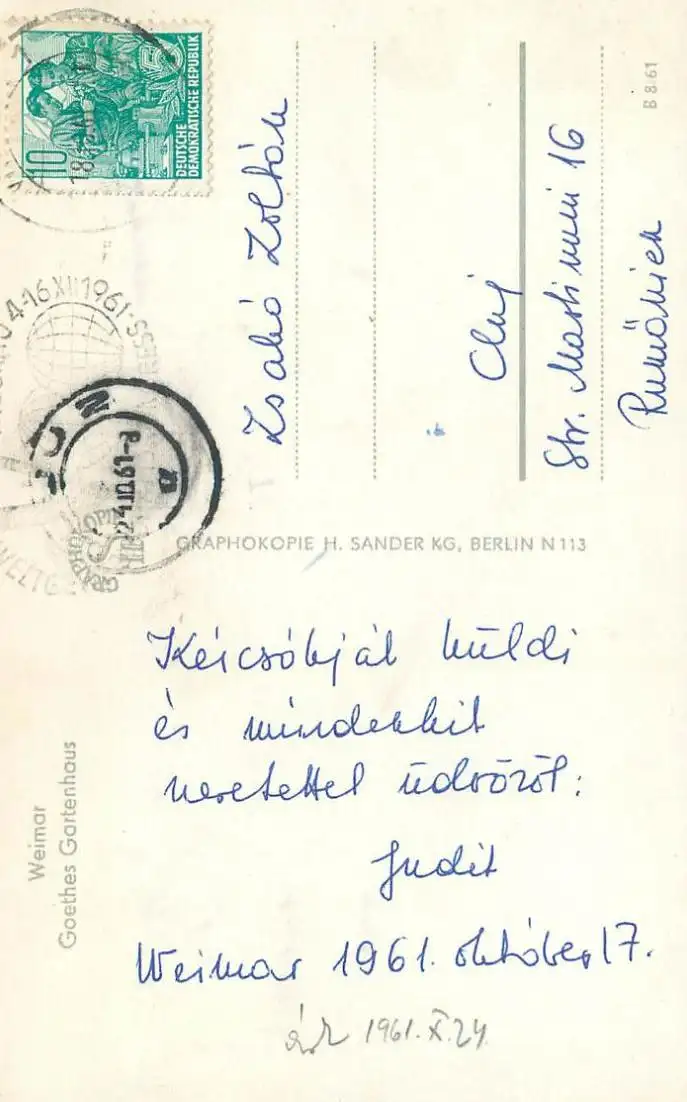 Kézcsókját küldi
és mindenkit
szeretettel üdvözöl:
Judit
Weimar 1961. október 17.
érk 1961.X.24.
Weimar
Goethes Gartenhaus
GRAPHOKOPIE H. SANDER KG, BERLIN N 113
Szabó Zoltán
Cluj
Str. Martinuzzi 16
Rumänien
B 8/61
10
DEUTSCHE
DEMOKRATISCHE REPUBLIK
4-16 XII 1961
24.10.61-8